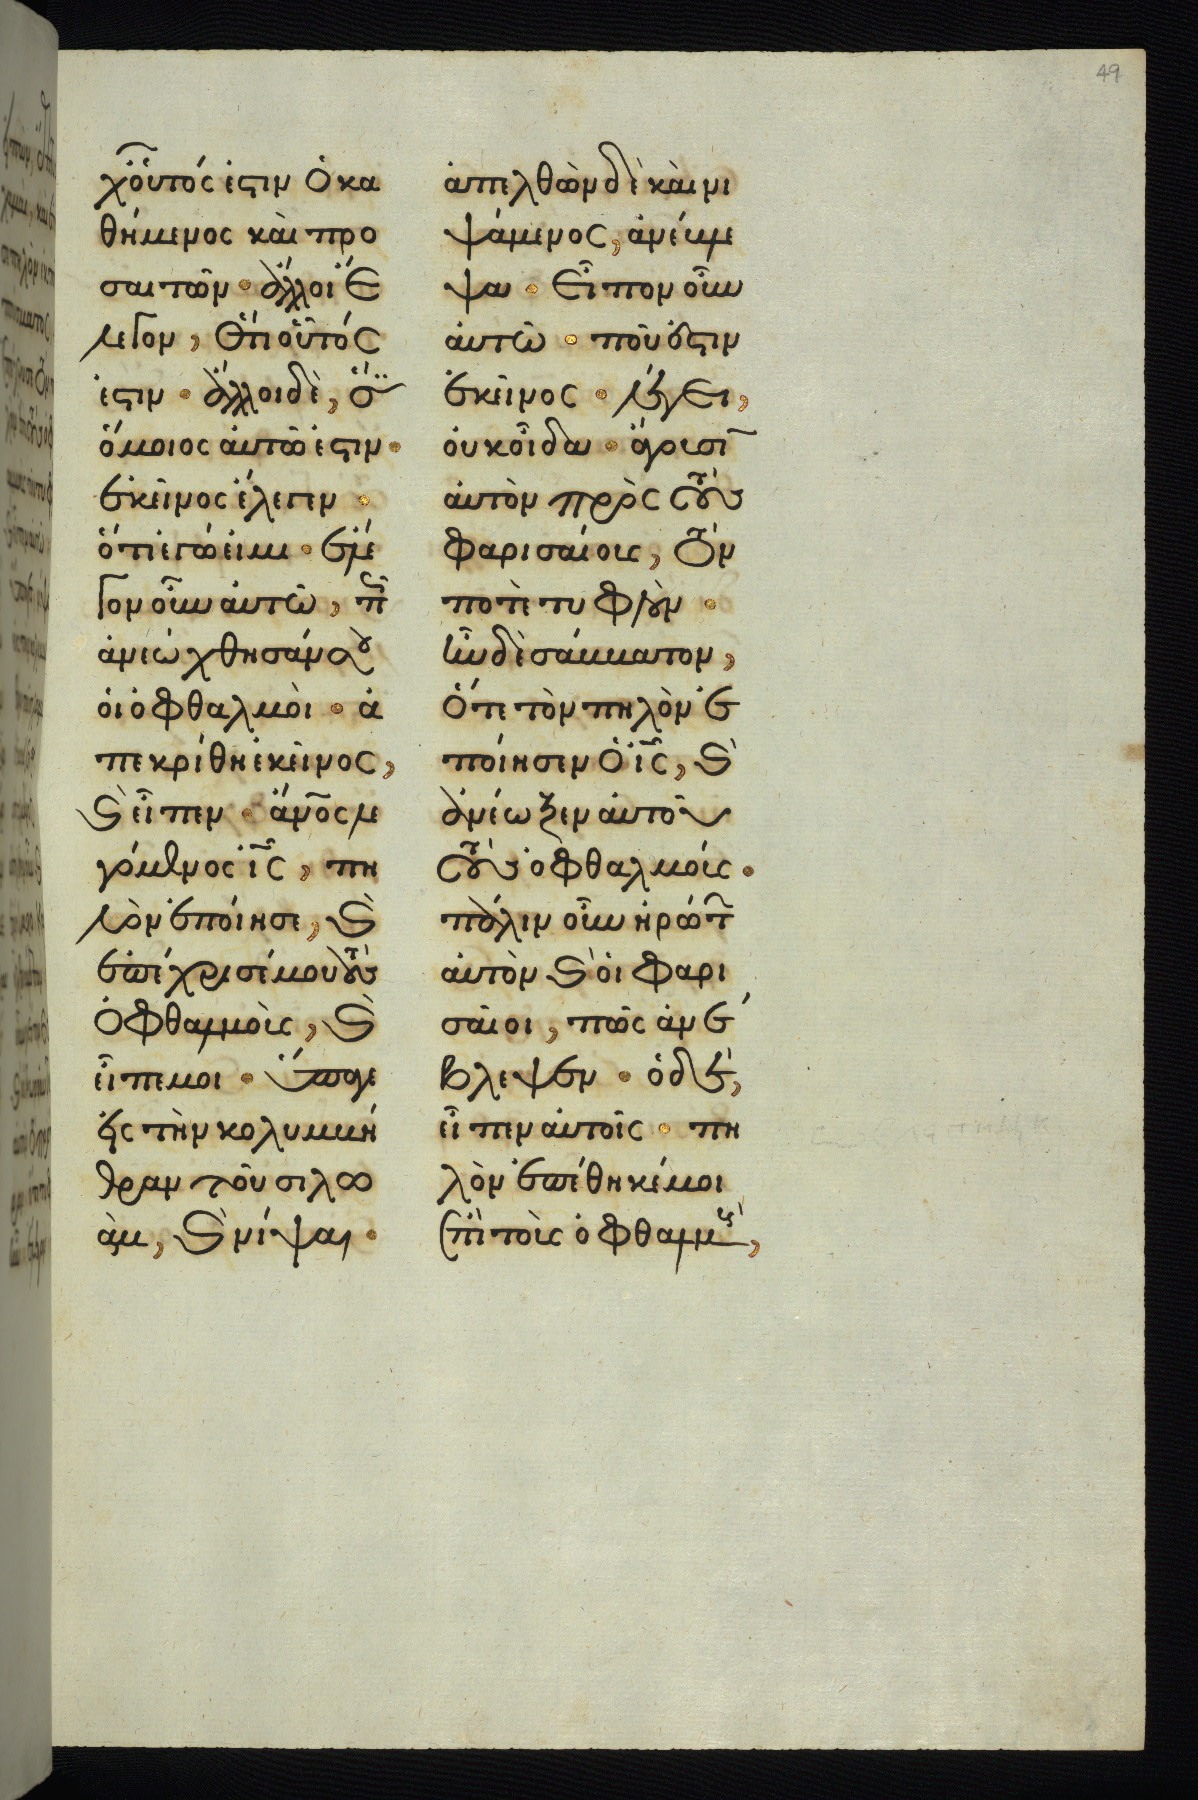 49
χ οὗτός ἐστιν ὁ κα
θήμενος καὶ προ
σαιτῶν · ἄλλοι ἔ
λεγον, ὅτι οὗτός
ἐστιν · ἄλλοι δὲ, ὅτι
ὅμοιος αὐτῶ ἐστιν ·
ἐκεῖνος ἔλεγεν ·
ὅτι ἐγώ εἰμι · ἔλε
γον οὖν αὐτῶ, πῶς
ἀνεώχθησάν σου
οἱ ὀφθαλμοὶ · ἀ
πεκρίθη ἐκεῖνος,
καὶ εἶπεν · ἄνος λε
γόμενος ις, πη
λὸν ἐποίησε, καὶ
ἐπέχρισέ μου τοὺς
ὀφθαλμοὺς, καὶ
εἶπέ μοι · ὕπαγε
εἰς τὴν κολυμβή
θραν τοῦ σιλω
ὰμ, καὶ νίψαι ·
ἀπελθὼν δὲ καὶ νι
ψάμενος, ἀνέβλε
ψα · εἶπον οὖν
αὐτῶ · ποῦ ἐστιν
ἐκεῖνος · λέγει,
οὐκ οἶδα · ἄγουσιν
αὐτὸν πρὸς τοὺς
φαρισαίους, τόν
ποτε τυφλὸν ·
ἦν δὲ σάββατον,
ὅτε τὸν πηλὸν ἐ
ποίησεν ὁ ις, καὶ
ἀνέωξεν αὐτοῦ
τοὺς ὀφθαλμούς ·
πάλιν οὖν ἠρώτων
αὐτὸν καὶ οἱ φαρι
σαῖοι, πῶς ἀνέ
βλεψεν · ὁ δὲ,
εἶπεν αὐτοῖς · πη
λὸν ἐπέθηκέ μοι
ἐπὶ τοὺς ὀφθαλμοὺς,